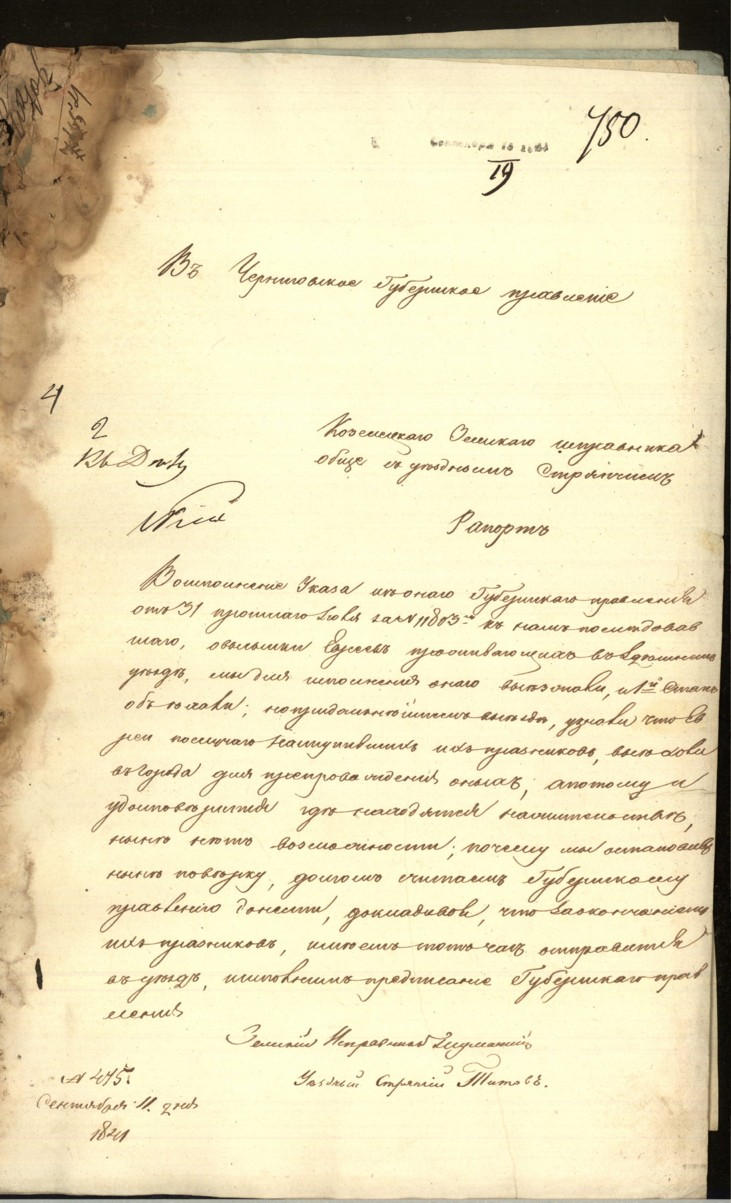 750.
Сентября 18
19
Въ Черниговское Губернское правленіе
4
2
Козелецкаго Земскаго исправника
обще съ уезднымъ Стряпчимъ
Рапортъ
Воисполненіе Указа изъ онаго Губернскаго правленія
отъ 31 прошлаго Іюля за №11803мъ къ намъ последовав
шаго, овысылки Евреевъ проживающихъ въ здешнемъ
уезде, мы для исполненія онаго выезжали, и 1й Станъ
объехали; но придальнейшемъ выезде, узнали что Ев
реи послучаю наступившихъ ихъ празниковъ, выехали
въ города для препровожденія оныхъ, апотому и
удостоверится где находятся на жительстве,
ныне нетъ возможности; почему мы остановивъ
ныне поверку, долгомъ считаемъ Губернскому
правленію донести, докладивая, что заокончаніемъ
ихъ празниковъ, имеемъ тотъ часъ отправится
въ уездъ, исполнить предписаніе Губернскаго прав
ленія
Земскій Исправникъ
Уездный Стряпчій Титовъ.
№ 475.
Сентября 11. дня
1841